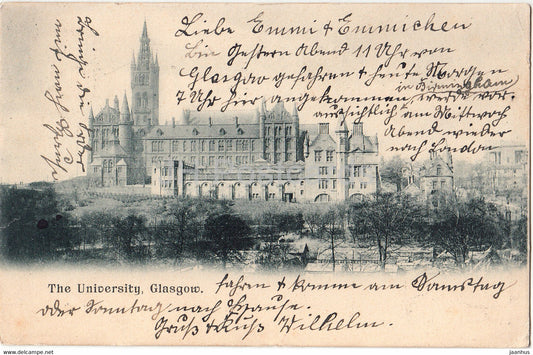 Liebe Emmi & Emmichen
bin Gestern Abend 11 Uhr von
Glasgow gefahren & heute Morgen
7 Uhr hier angekommen, werde vor-
in Birmingham
aussichtlich am Mittwoch
Abend wieder
nach London
The University, Glasgow.
fahren & komme am Samstag
oder Sonntag nach Hause.
Gruß & Kuß Wilhelm.
www.delcampe.net
jaanhus